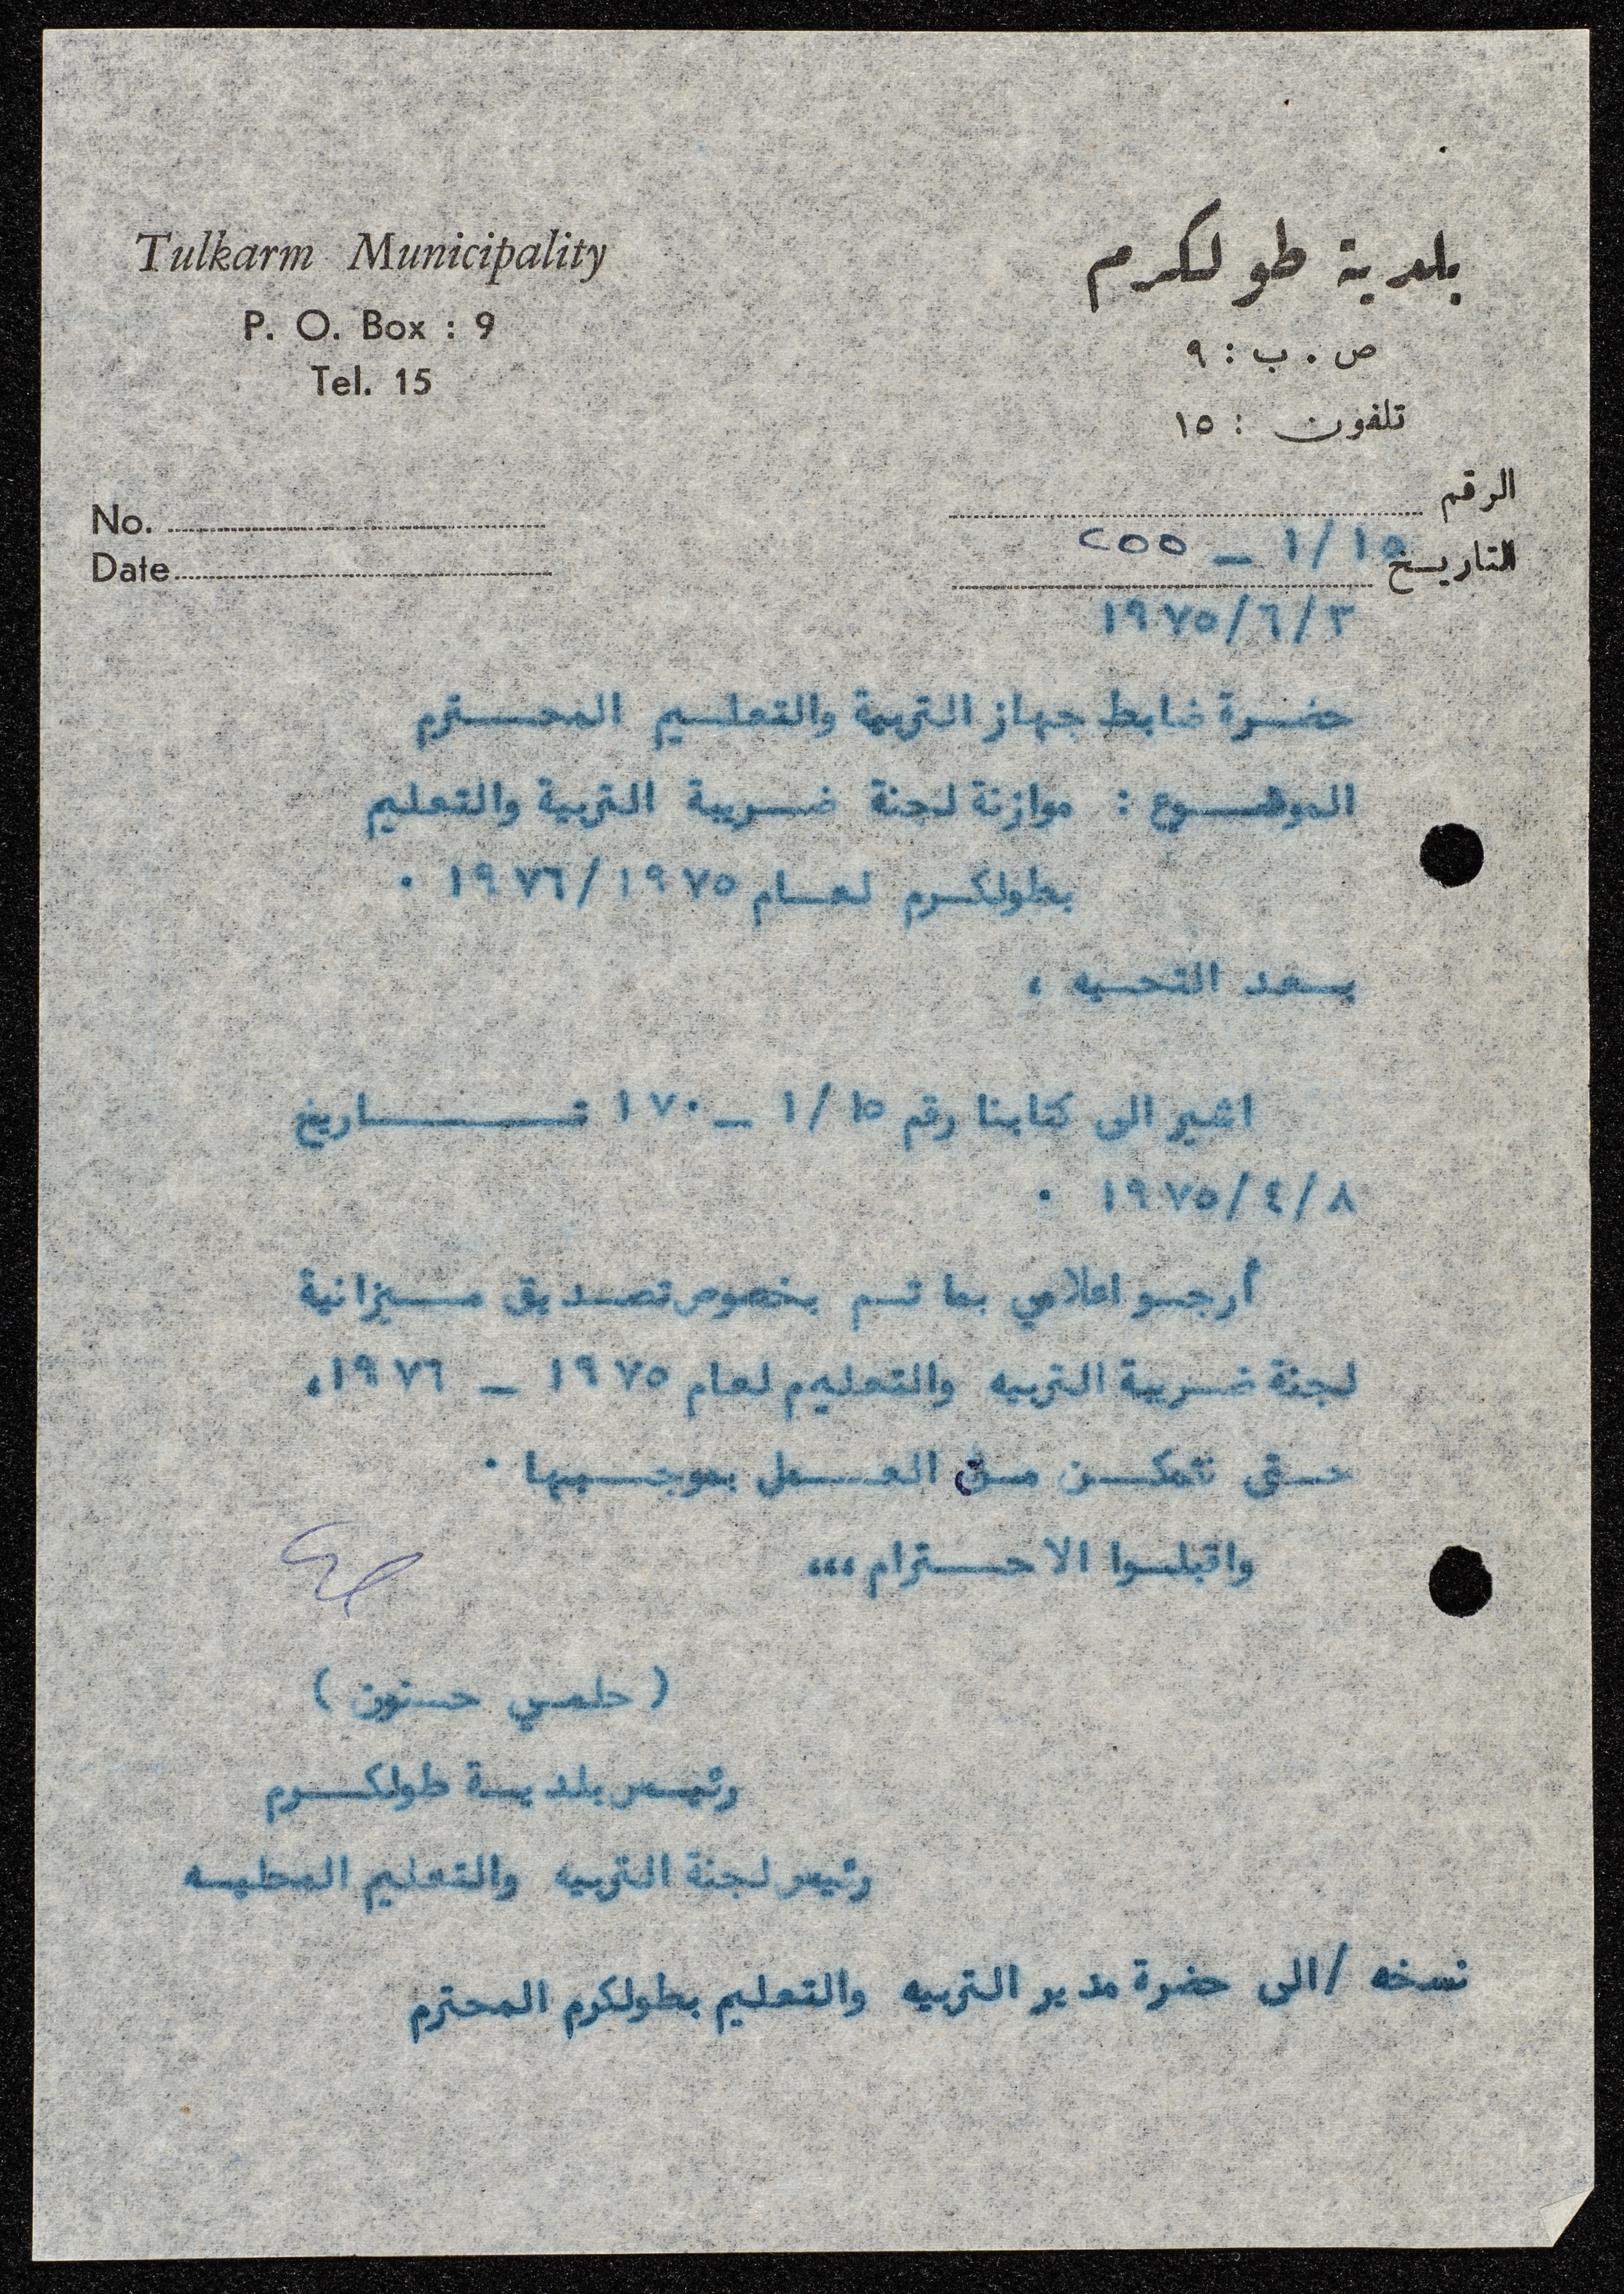 Tulkarm Municipality
P. O. Box : 9
Tel. 15
No.
Date
بلدية طولكرم
ص . ب : ٩
تلفون : ١٥
الرقم
١/١٥ – ٢٥٥
التاريخ
١٩٧٥/٦/٣
حضرة ضابط جهاز التربية والتعليم المحترم
الموضوع : موازنة لجنة ضريبة التربية والتعليم
بطولكرم لعام ١٩٧٦/١٩٧٥ ٠
بعد التحيه ،
اشير الى كتابنا رقم ١/١٥ – ١٧٠ تاريخ
١٩٧٥/٤/٨ ٠
أرجو اعلامي بما تم بخصوص تصديق ميزانية
لجنة ضريبة التربيه والتعليم لعام ١٩٧٥ – ١٩٧٦،
حتى نتمكن من العمل بموجبها ٠
واقبلوا الاحترام ،،،
( حلمي حنون )
رئيس بلدية طولكرم
رئيس لجنة التربيه والتعليم المحليه
نسخه / الى حضرة مدير التربيه والتعليم بطولكرم المحترم